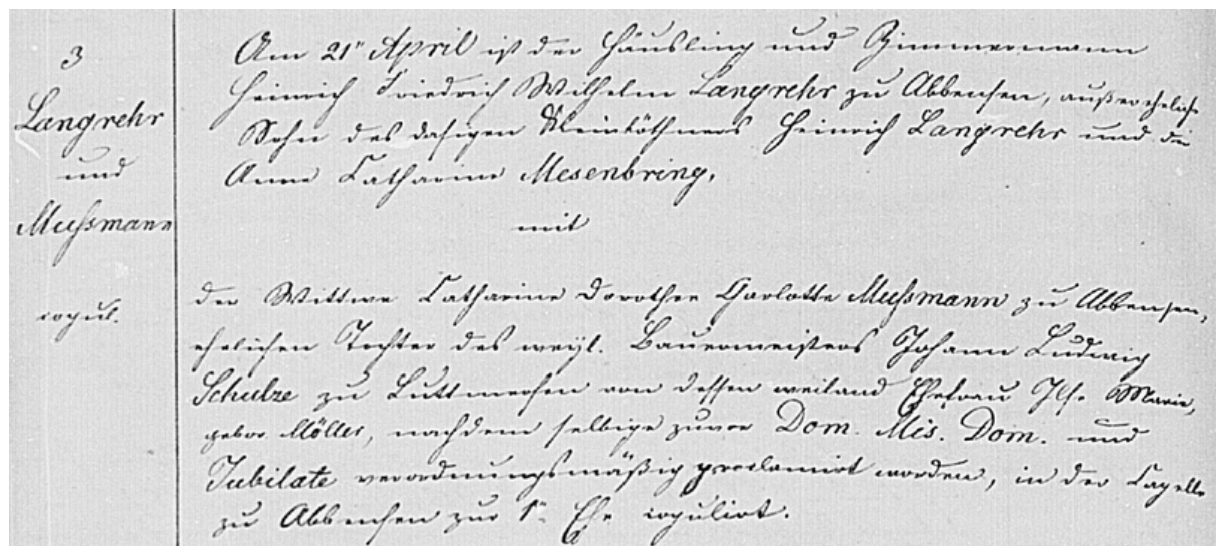 3
Langrehr
und
Mussmann
copul.
Am 21n April ist der Häusling und Zimmermann
Heinrich Friedrich Wilhelm Langrehr zu Abbensen, außereheliche
Sohn des dasigen Kleinköthners Heinrich Langrehr und der
Anne Catharine Mesenbring,
mit
der Wittwe Catharine Dorothee Charlotte Mussmann zu Abbensen,
ehelichen Tochter des weyl. Bauermeisters Johann Ludwig
Schulze zu Luttmersen von dessen weiland Ehefrau Ilse Marie,
gebor. Möller, nachdem selbige zuvor Dom. Mis. Dom. und
Jubilate verordnungsmäßig proclamirt worden, in der Capelle
zu Abbensen zur Ehe copulirt.